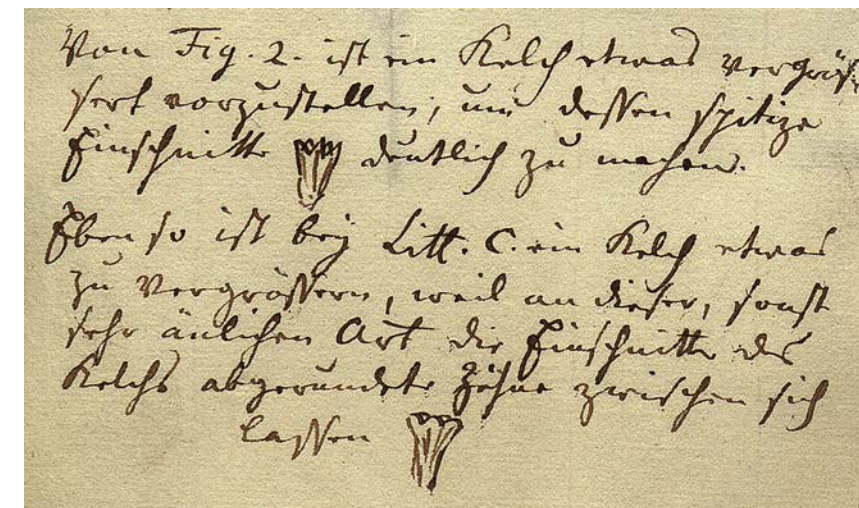 Von Fig. 2. ist ein Kelch etwas vergrös-
sert vorzustellen, um dessen spitze
Einschnitte deutlich zu machen.
Eben so ist bey Litt. C. ein Kelch etwas
zu vergrössern, weil an dieser, sonst
sehr änlichen Art die Einschnitte des
Kelchs abgerundete Zähne zwischen sich
lassen